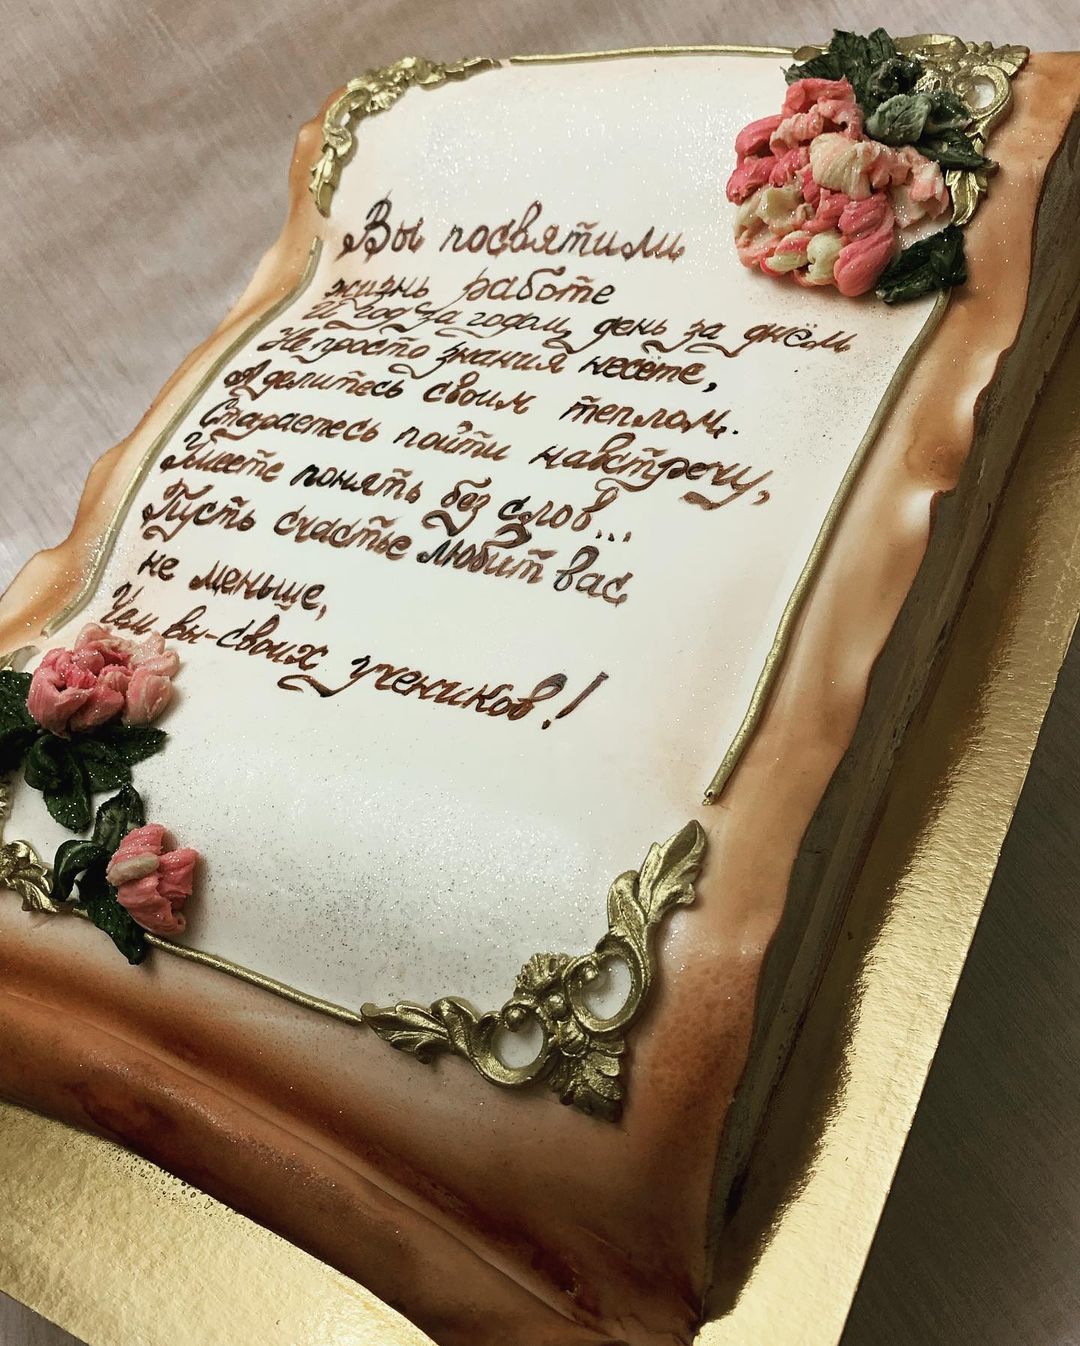 Вы посвятили
жизнь работе
И год за годом, день за днём
Не просто знания несёте,
А делитесь своим теплом.
Стараетесь пойти навстречу,
Умеете понять без слов...
Пусть счастье любит вас
не меньше,
Чем вы-своих учеников!